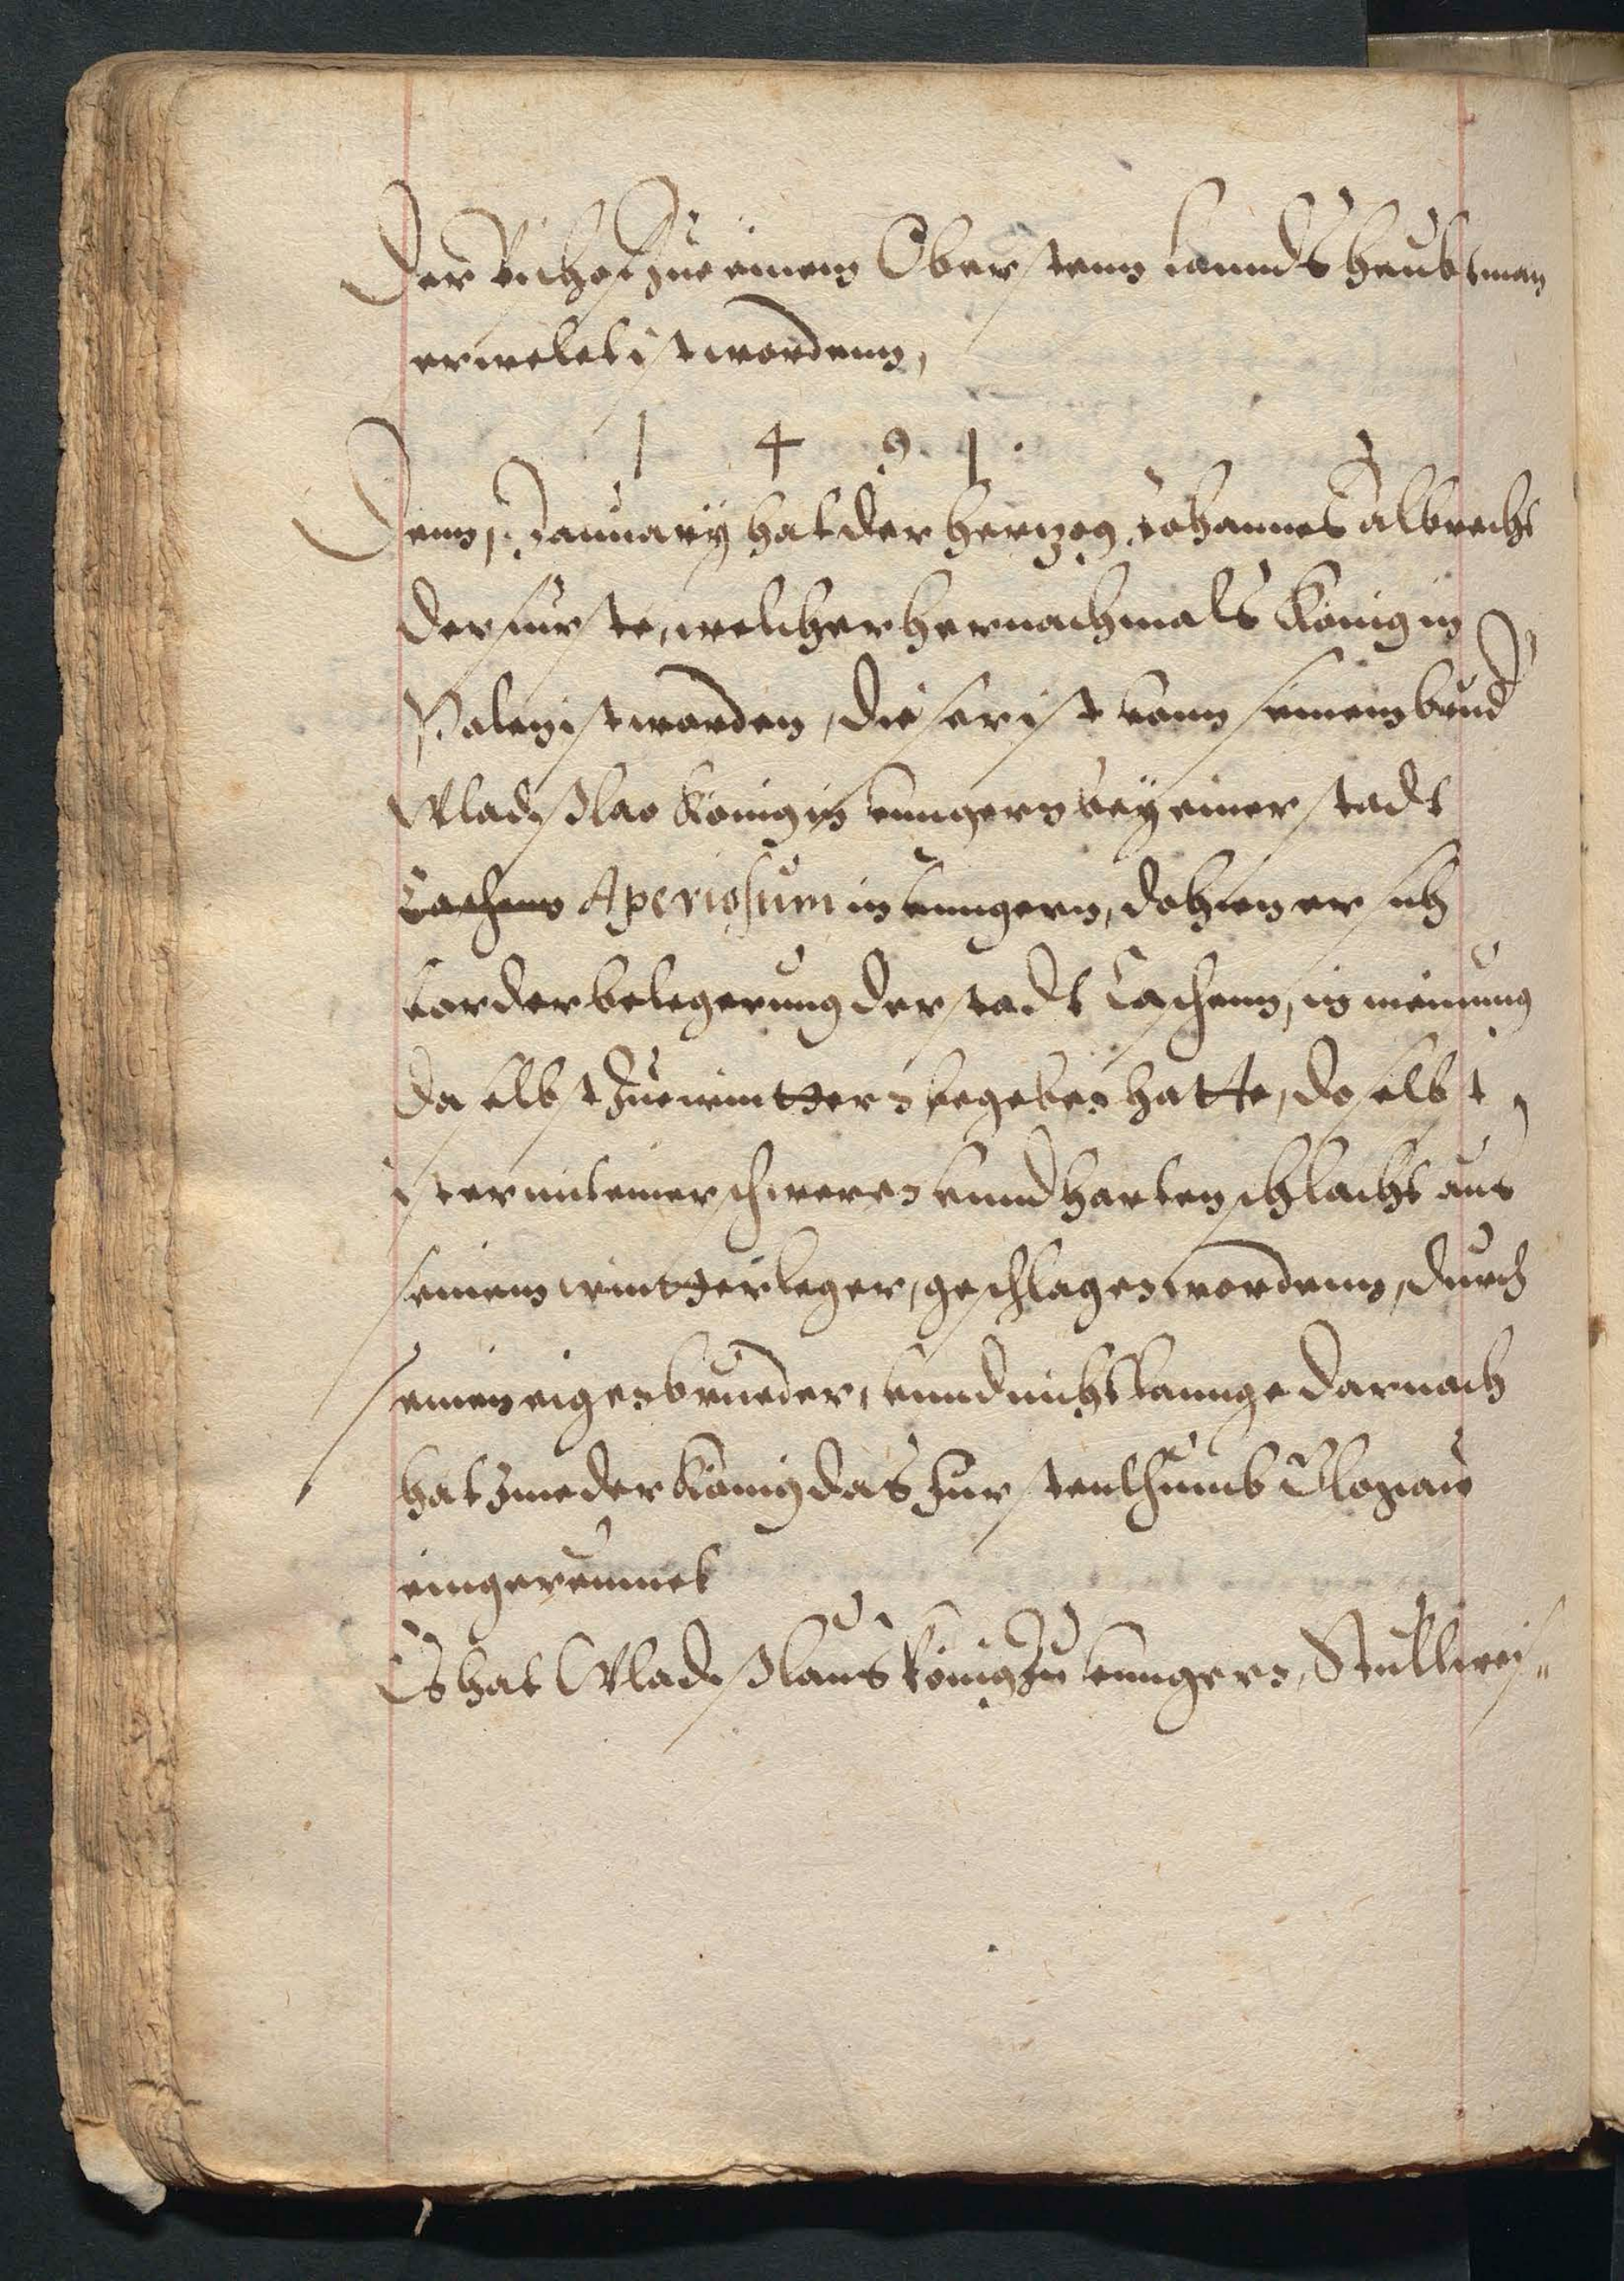 Der Bischof zue einem Oberstenn Lanndsheubtman
erwelet ist wordenn,
1 4 9 1.
Denn 1. January hat der Hertzog Johannes Albrecht
der furste, welcher hernachmals König in
Polen ist worden, dieser ist vonn seinem brud
Wladisslao König in Vungern bey einer stadt
Caschaw Aperiosum in Vungern, dohien er sich
vor der belegerung der stadt Caschaw, in meinung
daselbst zue winttern begeben hatte, doselbst
ist er mit einer schweren vnnd harten schlacht aus
seinem wintterleger, geschlagen wordenn, durch
seinen eigen brueder, vnnd nicht lannge darnach
hat Ime der König das Furstenthumb Glogaw
eingereumet
Es hat Wladisslaus König zu Vungern, Stullweis=